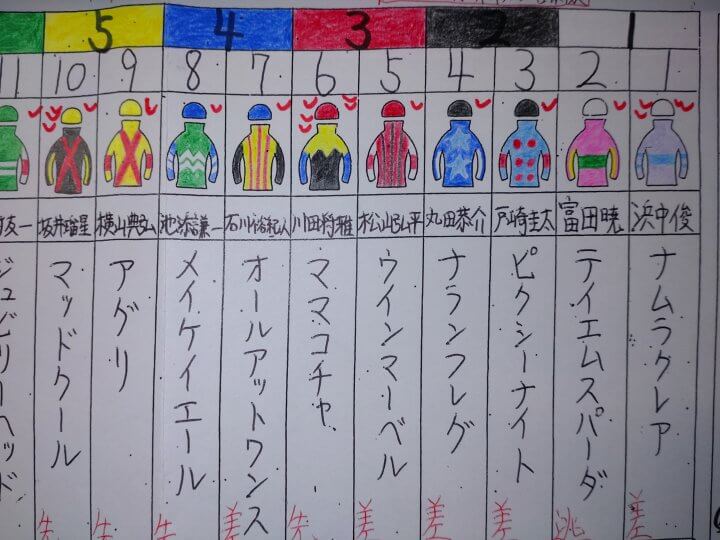 5 4 3 2 1
11 10 9 8 7 6 5 4 3 2 1
友一 坂井瑠星 横山典弘 池添謙一 石川裕紀人 川田将雅 松山弘平 丸田恭介 戸崎圭太 富田暁 浜中俊
ナムラクレア
テイエムスパーダ
ピクシーナイト
ナランフレグ
ウインマーベル
ママコチャ
オールアットワンス
メイケイエール
アグリ
マッドクール
ジュビリーヘッド
先 先 先 差 先 差 差 差 逃 差